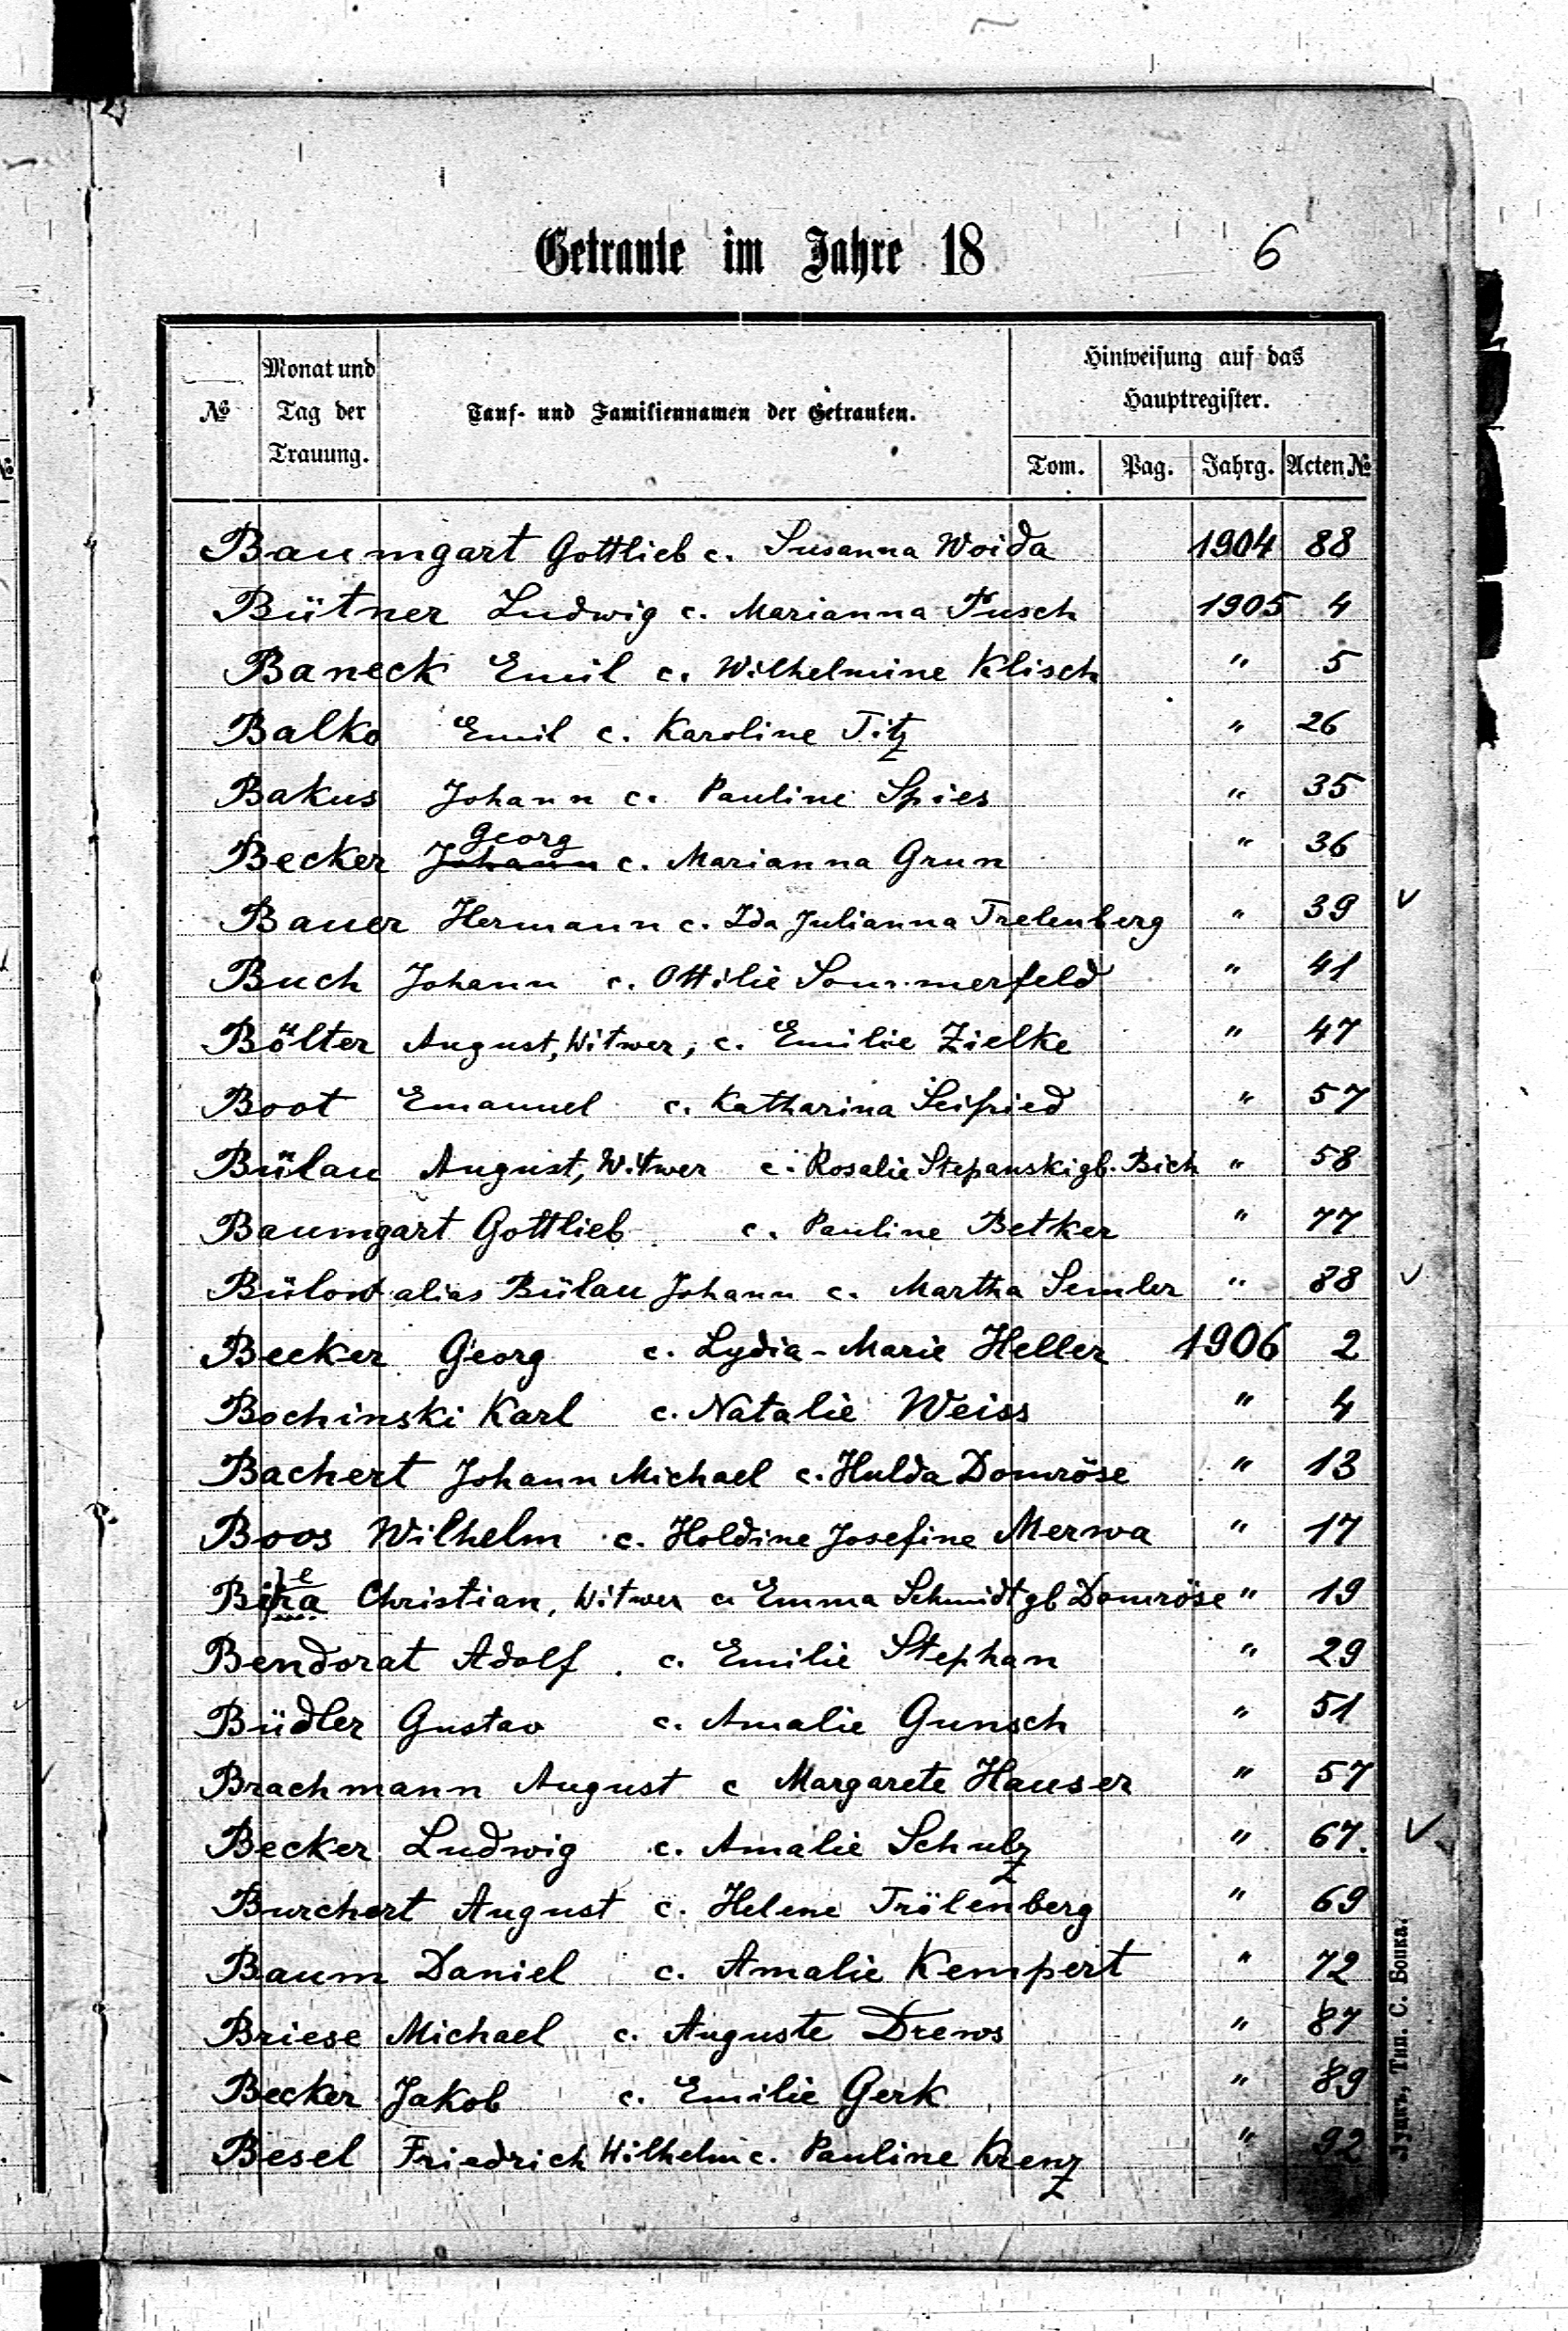 Getraute im Jahre 18
6
№
Monat und Tag der Trauung.
Tauf- und Familiennamen der Getrauten.
Hinweisung auf das Hauptregister.
Tom. Pag. Jahrg. Acten №
Baumgart Gottlieb c. Susanna Woida 1904 88
Bütner Ludwig c. Marianna Pusch 1905 4
Baneck Emil c. Wilhelmine Klisch " 5
Balko Emil c. Karoline Titz " 26
Bakus Johann c. Pauline Spies " 35
Becker Johann Georg c. Marianna Grun " 36
Bauer Hermann c. Ida Julianna Trelenberg " 39 ✓
Buch Johann c. Ottilie Sommerfeld " 41
Bölter August, Witwer, c. Emilie Zielke " 47
Boot Emanuel c. Katharina Seifried " 57
Bülau August, Witwer c. Rosalie Stepanski gb. Bich " 58
Baumgart Gottlieb c. Pauline Betker " 77
Bülow alias Bülau Johann c. Martha Semler " 88 ✓
Becker Georg c. Lydia-Marie Heller 1906 2
Bochinski Karl c. Natalie Weiss " 4
Bachert Johann Michael c. Hulda Domröse " 13
Boos Wilhelm c. Holdine Josefine Merwa " 17
Christian, Witwer c. Emma Schmidt gb Domröse " 19
Bendorat Adolf c. Emilie Stephan " 29
Büdler Gustav c. Amalie Gunsch " 51
Brachmann August c Margarete Hauser " 57
Becker Ludwig c. Amalie Schulz " 67. ✓
Burchert August c. Helene Trölenberg " 69
Baum Daniel c. Amalie Kempert " 72
Briese Michael c. Auguste Drews " 87
Becker Jakob c. Emilie Gerk " 89
Besel Friedrich Wilhelm c. Pauline Krenz " 92
Луцкъ, Тип. С. Бошка.